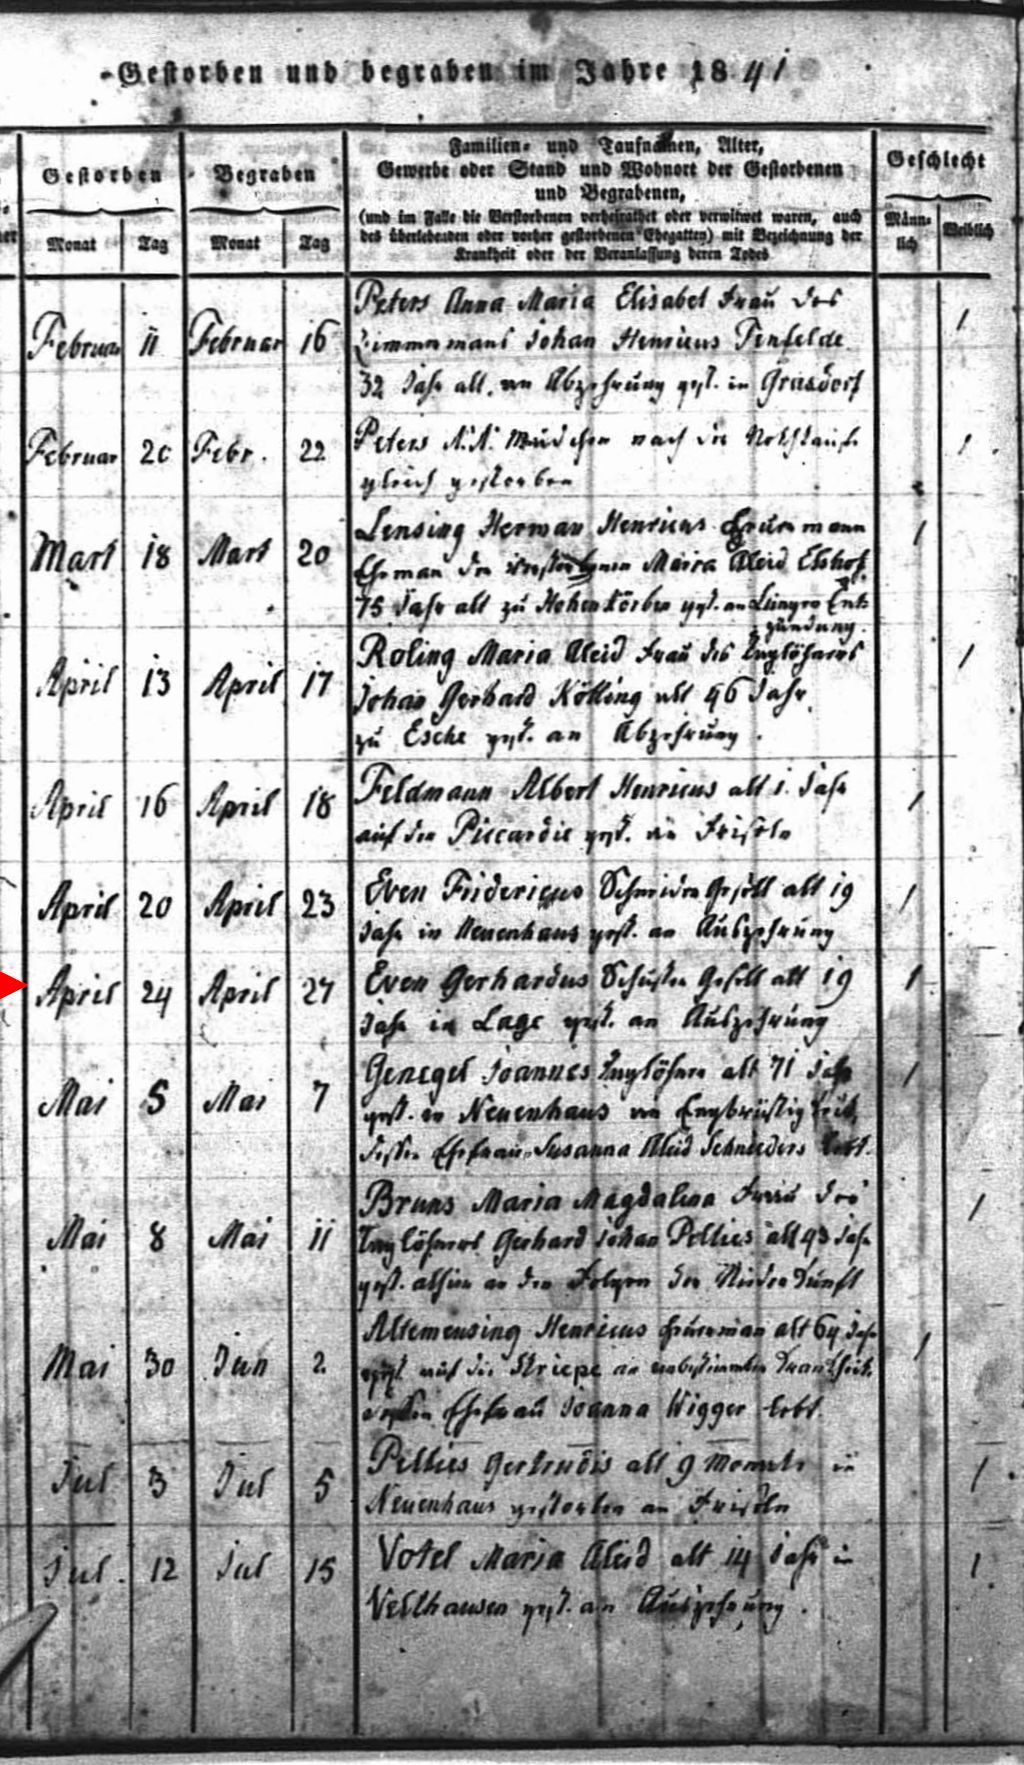 Gestorben und begraben im Jahre 1841
Gestorben
Begraben
Familien- und Taufnamen, Alter,
Gewerbe oder Stand und Wohnort der Gestorbenen
und Begrabenen,
(und im Falle die Verstorbenen verheirathet oder verwitwet waren, auch
des überlebenden oder vorher gestorbenen Ehegatten) mit Bezeichnung der
Krankheit oder der Veranlassung deren Todes
Geschlecht
Monat Tag Monat Tag
Männ-
lich
Weiblich
Peters Anna Maria Elisabet Frau des
Februar 11 Februar 16 Zimmermans Johan Henricus Tenfelde 1
32 Jahr alt, an Abzehrung gest. in Grasdorf
Februar 20 Febr. 22 Peters N.N. Mädchen nach der Nothtaufe 1
gleich gestorben
Lensing Herman Henricus 1
Mart 18 Mart 20 Ehman der verstorbenen Maira Aleid Elshof
75 Jahr alt zu Hohenkörben gest. an Lungen Ent-
zündung
Roling Maria Aleid Frau des Taglöhners 1
April 13 April 17 Johan Gerhard Kölling alt 46 Jahr
zu Esche gest. an Abzehrung.
April 16 April 18 Feldmann Albert Henricus alt 1 Jahr 1
auf der Piccardie gest. an Friseln
April 20 April 23 Even Fridericus Schneider Gesell alt 19 1
Jahr in Neuenhaus gest. an Auszehrung
April 24 April 27 Even Gerhardus Schuster Gesell alt 19 1
Jahr in Lage gest. an Auszehrung
Genegel Joannes Taglöhner alt 71 Jahr 1
Mai 5 Mai 7 gest. in Neuenhaus an Engbrüstigkeit,
dessen Ehefrau Susanna Aleid Schnieders lebt.
Bruns Maria Magdalena Frau des 1
Mai 8 Mai 11 Taglöhners Gerhard Johan Pellies alt 43 Jahr
gest. alhier an den Folgen der Niederkunft
Altemeusing Henricus alt 64 Jahr 1
Mai 30 Jun 2 gest. auf die Striepe an unbestimmter Krankheit
dessen Ehefrau Joanna Wigger lebt.
Jul 3 Jul 5 Pellies Gertrudis alt 9 Monate in 1
Neuenhaus gestorben an Friseln
Jul. 12 Jul 15 Votel Maria Aleid alt 14 Jahr in 1
Velthausen gest. an Auszehrung.